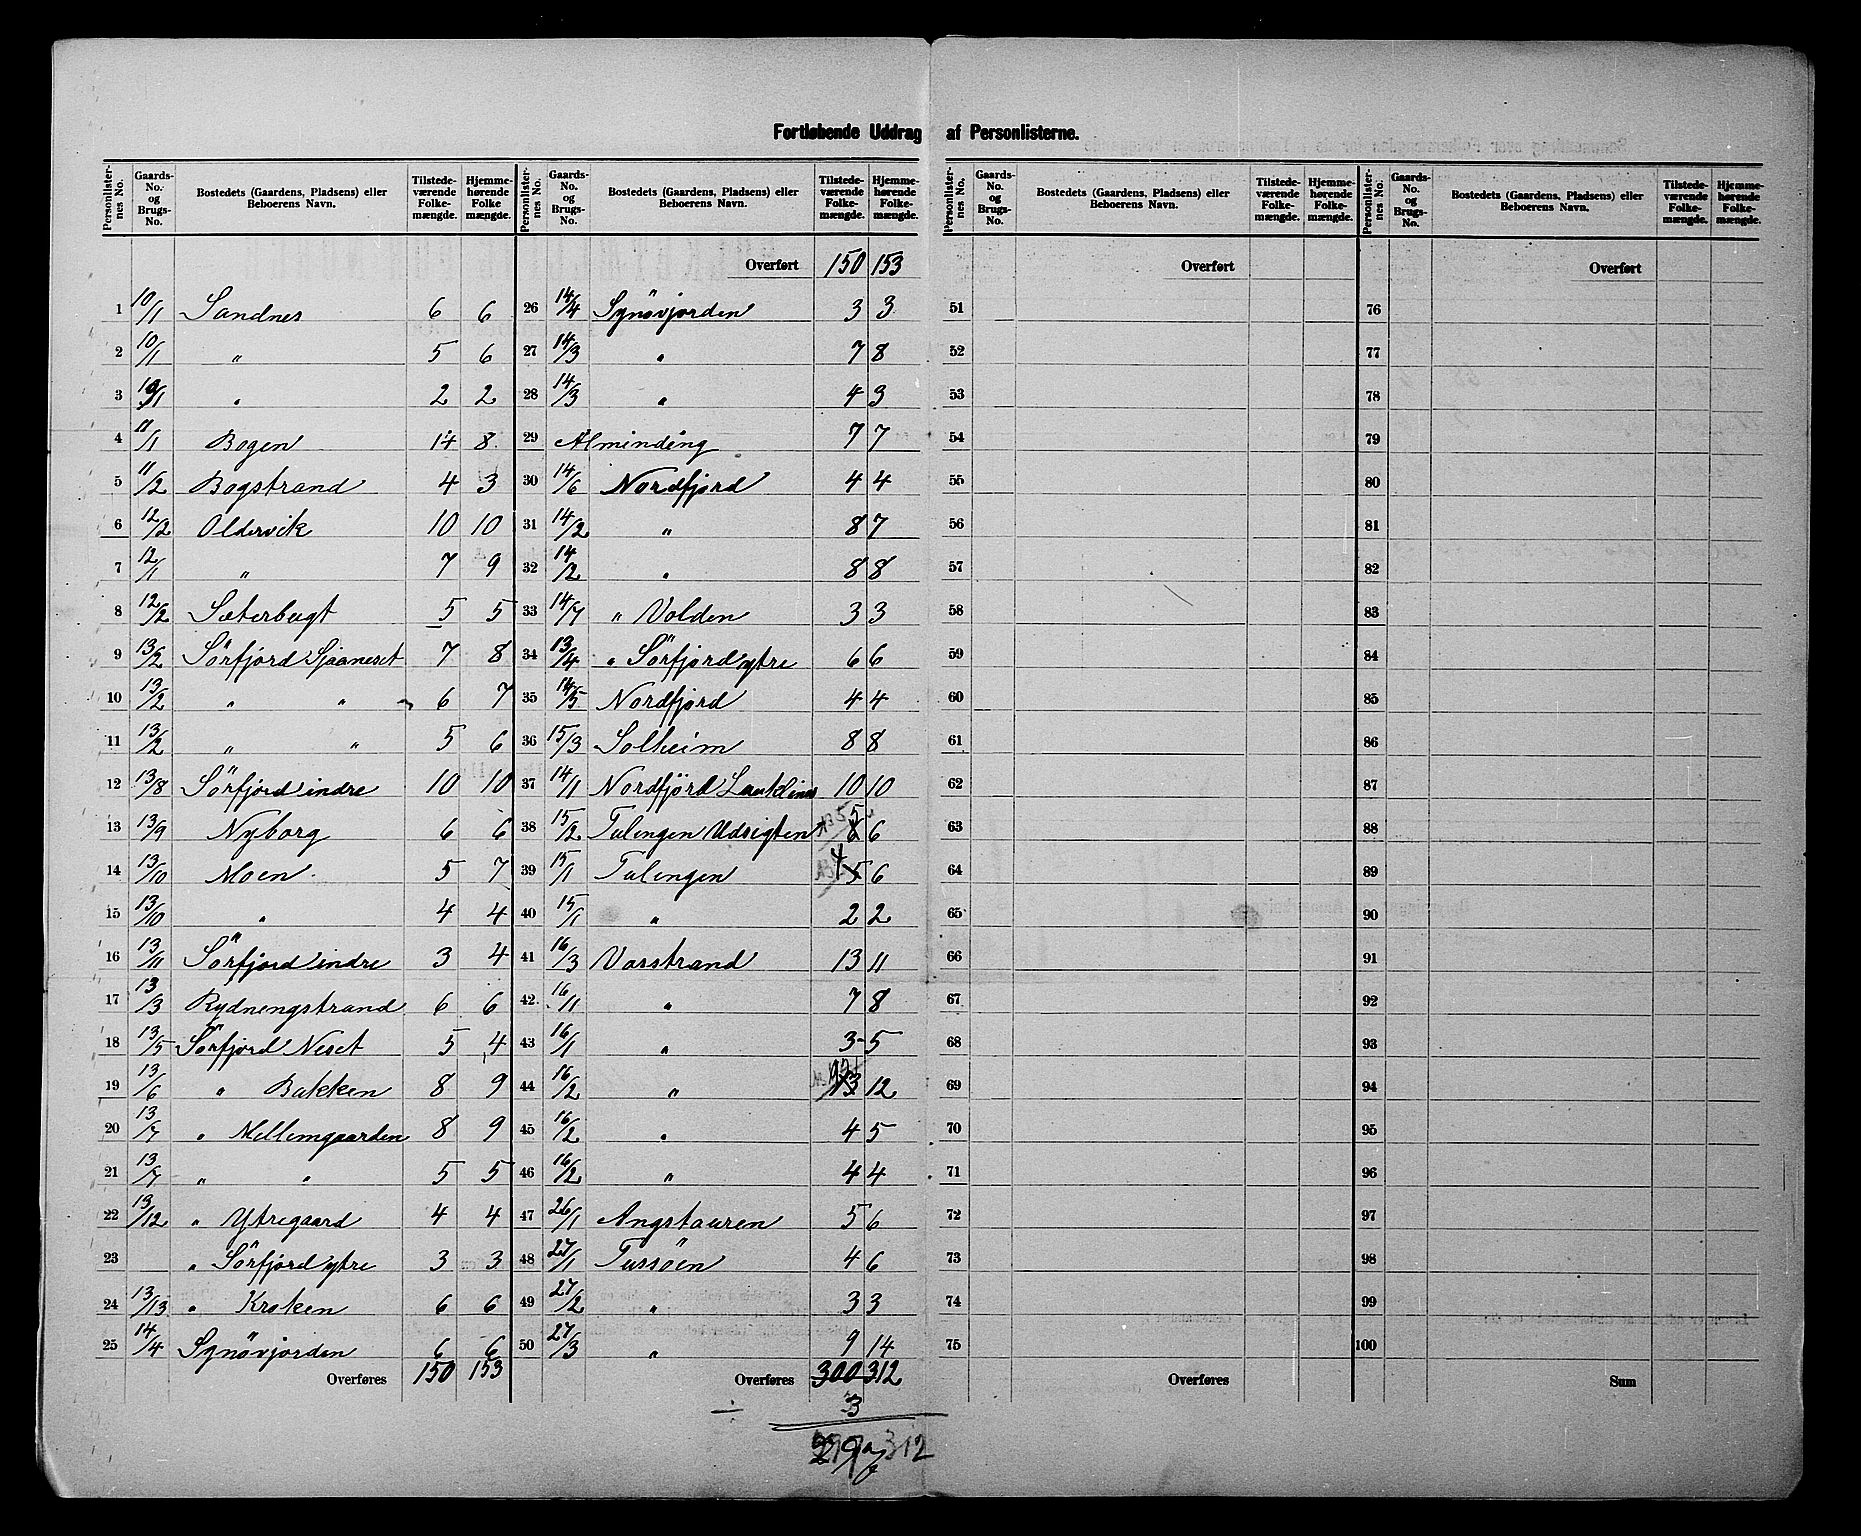 Fortløbende Uddrag af Personlisterne.
Personlister-nes No. Gaards-No. og Brugs-No. Bostedets (Gaardens, Pladsens) eller Beboerens Navn. Tilstede-værende Folke-mængde. Hjemme-hørende Folke mængde.
Personlister-nes No. Gaards-No. og Brugs-No. Bostedets (Gaardens, Pladsens) eller Beboerens Navn. Tilstede-værende Folke-mængde. Hjemme-hørende Folke-mængde.
1 10/1 Sandnes 6 6
2 10/1 " 5 6
3 10/1 " 2 2
4 11/1 Bogen 14 8
5 11/2 Bogstrand 4 3
6 12/2 Oldervik 10 10
7 12/1 " 7 9
8 12/2 Sæterbugt 5 5
9 13/2 Sörfjord Sjaaneset 7 8
10 13/2 " " 6 7
11 13/2 " " 5 6
12 13/8 Sörfjord indre 10 10
13 13/9 Nyborg 6 6
14 13/10 Moen 5 7
15 13/10 " 4 4
16 13/11 Sörfjord indre 3 4
17 13/3 Rydnengstrand 6 6
18 13/5 Sörfjord Neset 5 4
19 13/6 " Bakken 8 9
20 13/7 " Mellemgaarden 8 9
21 13/7 " " 5 5
22 13/12 " Ytregaard 4 4
23 " Sörfjord ytre 3 3
24 13/13 " Kroken 6 6
25 14/4 Synövjorden 6 6
Overføres 150 153
Overført 150 153
26 14/4 Synövjorden 3 3
27 14/3 " 7 8
28 14/3 " 4 3
29 Alminding 7 7
30 14/6 Nordfjord 4 4
31 14/2 " 8 7
32 14/2 " 8 8
33 14/7 " Volden 3 3
34 13/4 " Sörfjord ytre 6 6
35 14/5 Nordfjord 4 4
36 15/3 Solheim 8 8
37 14/1 Nordfjörd Lauklines 10 10
38 15/2 Tulengen Udsigten 5 6
39 15/1 Tulengen 4 5 6
40 15/1 " 2 2
41 16/3 Vasstrand 13 11
42 16/1 " 7 8
43 16/1 " 3 - 5
44 16/2 " 13 12
45 16/2 " 4 5
46 16/2 " 4 4
47 26/1 Angstauren 5 6
48 27/1 Tussöen 4 6
49 27/2 " 3 3
50 27/3 " 9 14
Overføres 300 312
÷ 3
297 312
Personlister-nes No. Gaards-No. og Brugs-No. Bostedets (Gaardens, Pladsens) eller Beboerens Navn. Tilstede-værende Folke-mængde. Hjemme-hørende Folke-mængde.
Overført
51
52
53
54
55
56
57
58
59
60
61
62
63
64
65
66
67
68
69
70
71
72
73
74
75
Overføres
Personlister-nes No. Gaards-No. og Brugs-No. Bostedets (Gaardens, Pladsens) eller Beboerens Navn. Tilstede-værende Folke-mængde. Hjemme-hørende Folke-mængde.
Overført
76
77
78
79
80
81
82
83
84
85
86
87
88
89
90
91
92
93
94
95
96
97
98
99
100
Sum